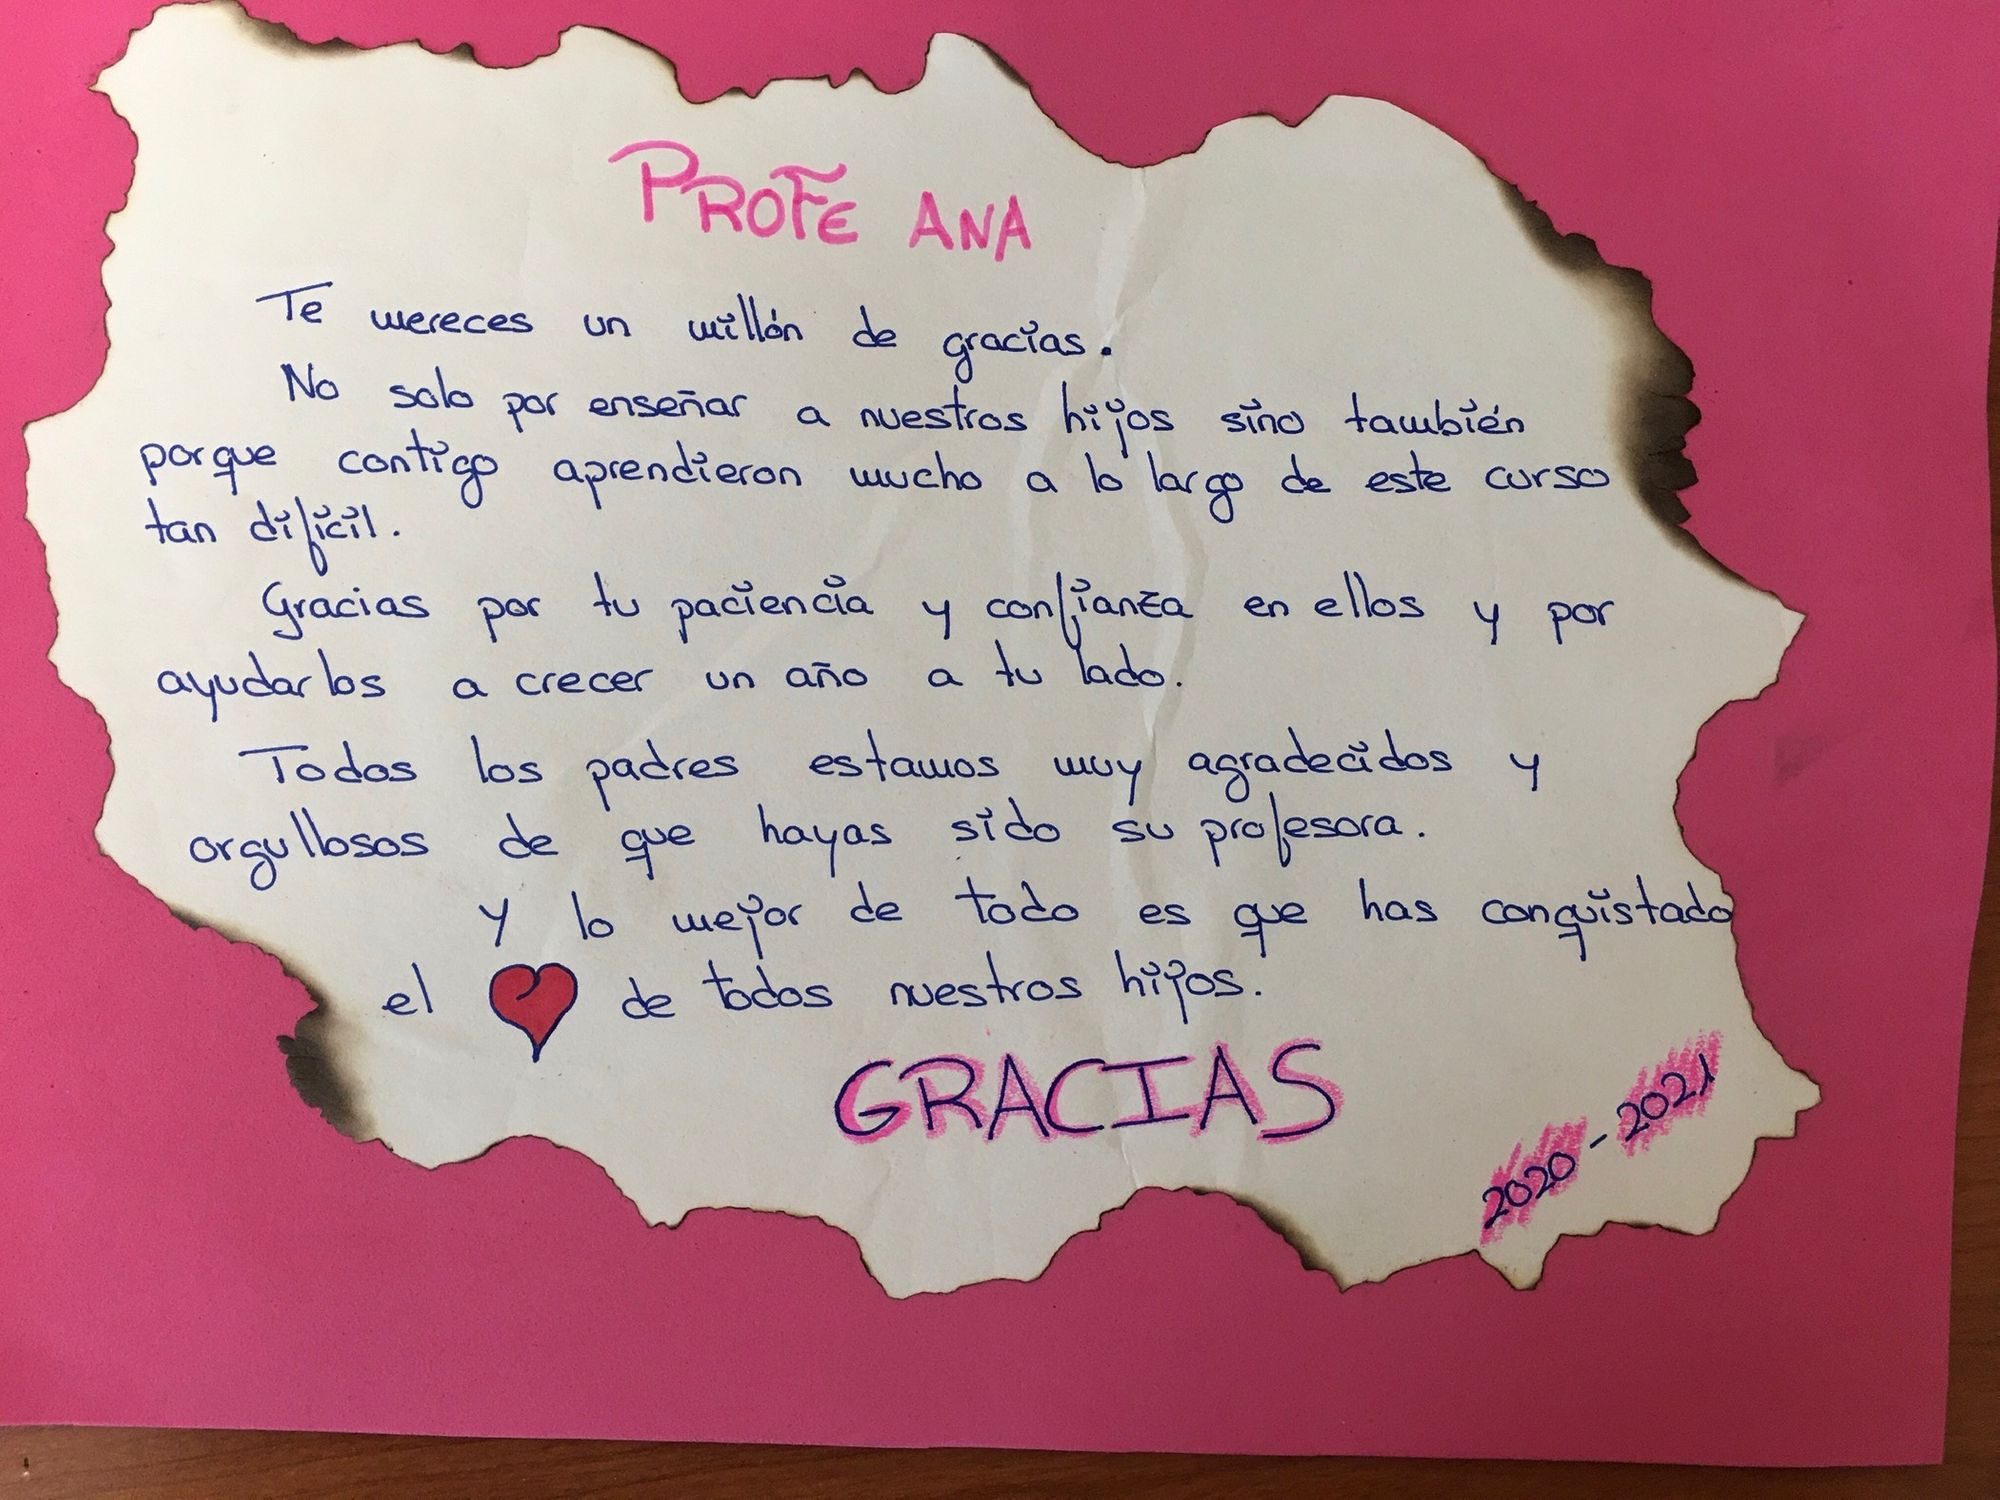 PROFE ANA
Te mereces un millón de gracias.
No solo por enseñar a nuestros hijos sino también
porque contigo aprendieron mucho a lo largo de este curso
tan dificil.
Gracias por tu paciencia y confianza en ellos y por
ayudarlos a crecer un año a tu lado.
Todos los padres estamos muy agradecidos y
orgullosos de que hayas sido su profesora.
y lo mejor de todo es que has conquistado
el ❤ de todos nuestros hijos.
GRACIAS
2020-2021